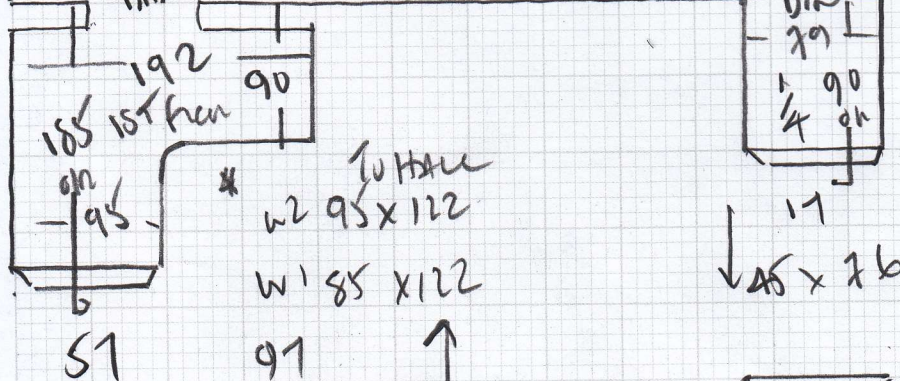 192
90
185 1ST floor
on
95
TO HALL
W2 95 x 122
W1 85 x 122
51
91
79
1/4 90
on
11
45 x 76